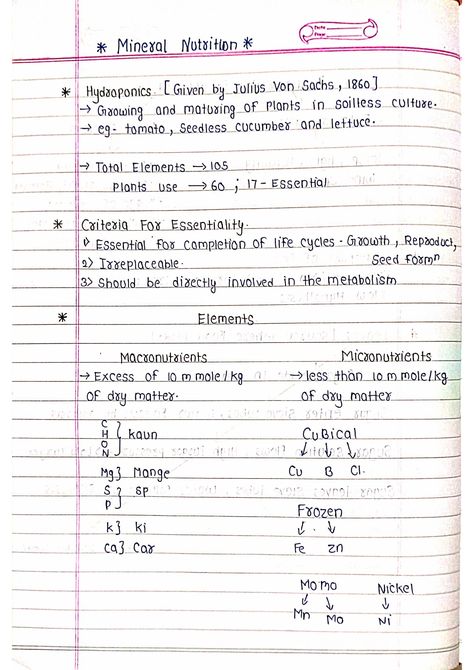 * Mineral Nutrition *
Date
Page
* Hydroponics [Given by Julius Von Sachs, 1860]
→ Growing and maturing of Plants in soilless culture.
→ eg- tomato, Seedless cucumber and lettuce.
→ Total Elements → 105
Plants use → 60 ; 17 - Essential
* Criteria For Essentiality.
1) Essential for completion of life cycles - Growth, Reproduct,
2) Irreplaceable. Seed formⁿ
3) Should be directly involved in the metabolism
* Elements
Macronutrients Micronutrients
→ Excess of 10 m mole/kg → less than 10 m mole/kg
of dry matter. of dry matter
C
H
O
N } kaun CuBical
Mg} Mange Cu B Cl.
S
P } SP
Frozen
k} ki
Ca} Car Fe Zn
Momo Nickel
Mn Mo Ni